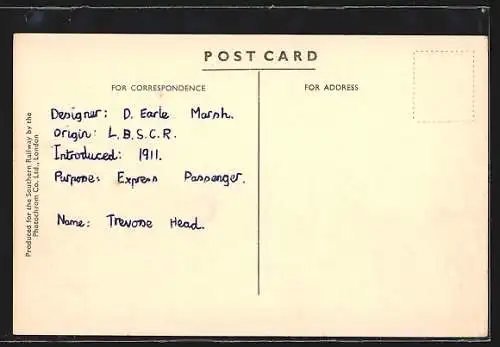 POST CARD
FOR CORRESPONDENCE
FOR ADDRESS
Designer: D. Earle Marsh.
Origin: L.B.S.C.R.
Introduced: 1911.
Purpose: Express Passenger.
Name: Trevose Head.
Produced for the Southern Railway by the
Photochrom Co. Ltd., London